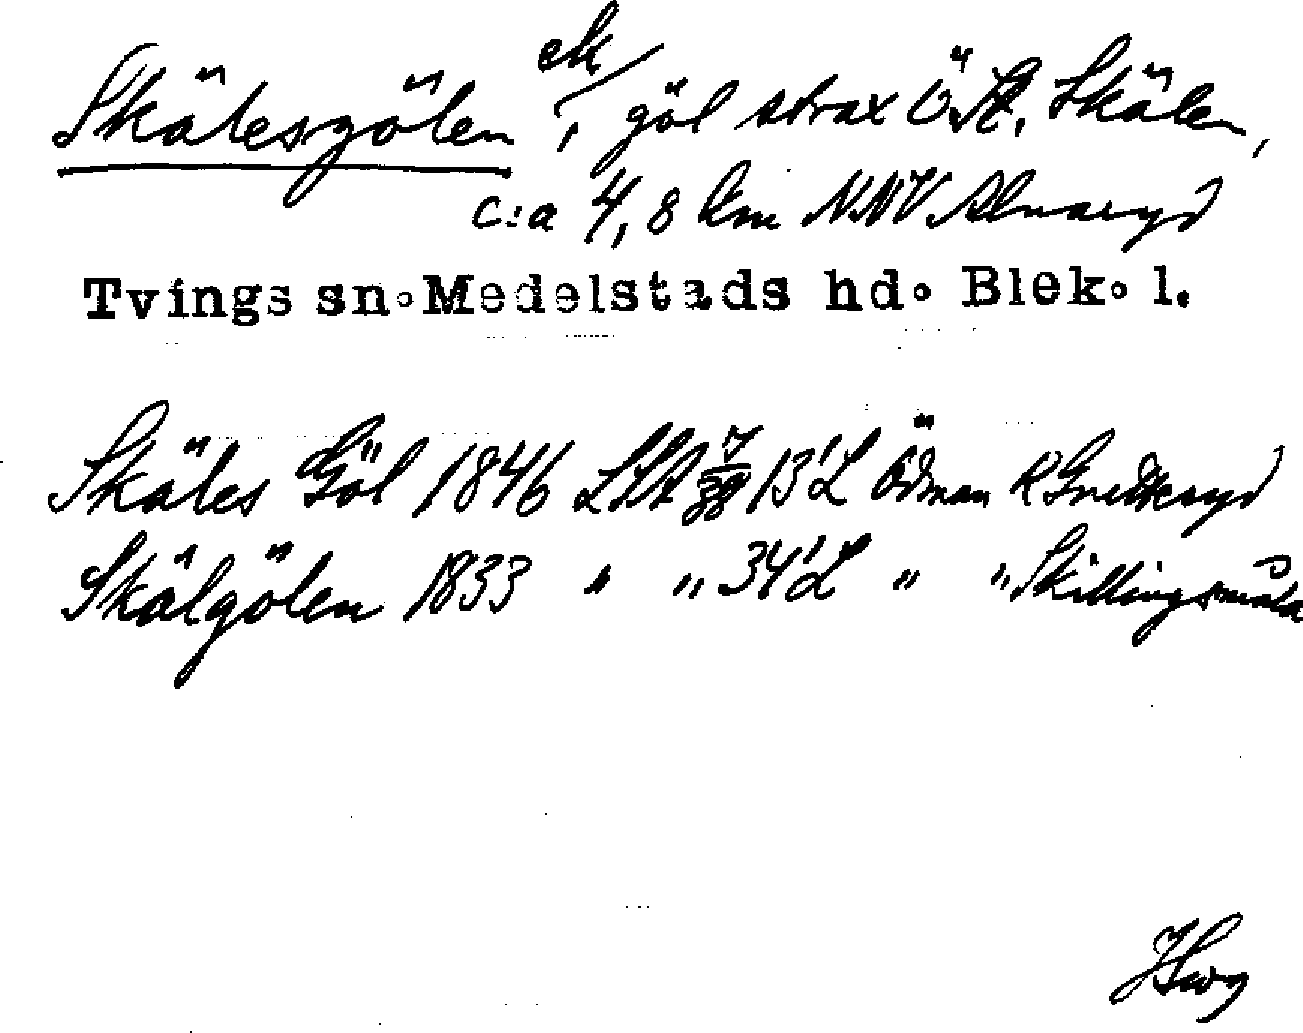 Skälesgölen ek/, göl strax Ö St. Skälen,
c:a 4,8 km NNV Alnaryd
Tvings sn. Medelstads hd. Blek. l.
Skäles Göl 1846 LSA 13'L Ödman R
Skälgölen 1833 " " 34'L " " Skillingsmåla